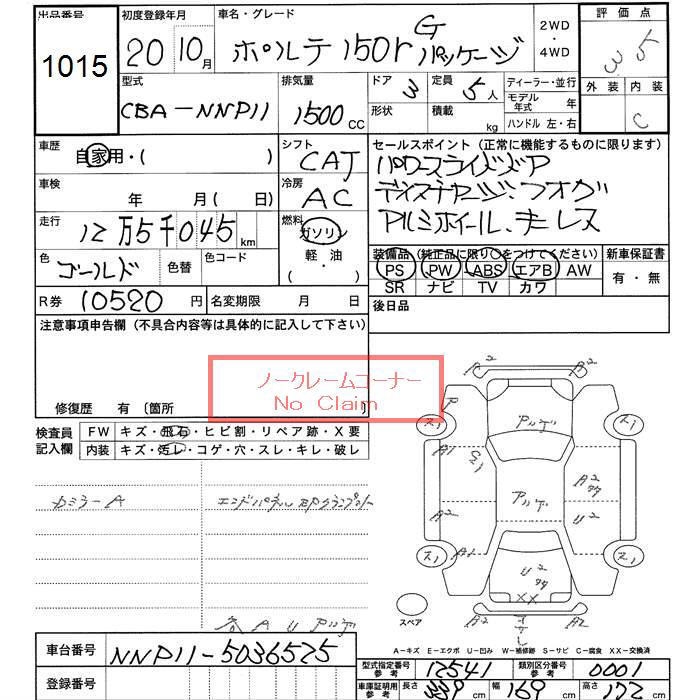 出品番号
1015
初度登録年月
20 10月
車名・グレード
ポルテ 150r Gパッケージ
2WD
・
4WD
評価点
3.5
外装 内装
C
型式
CBA-NNP11
排気量
1500 CC
ドア 3
定員 5人
形状
積載 kg
ディーラー・並行
モデル年式 年
ハンドル 左・右
車歴
自家用・( )
シフト
CAT
車検
年 月( 日)
冷房
AC
走行
12万5千045km
燃料
ガソリン
軽・油
( )
色
ゴールド
色替
色コード
R券 10520円
名変期限 月 日
セールスポイント(正常に機能するものに限ります)
パワースライドドア
ディスチャージ、フォグ
アルミホイール、キーレス
装備品(純正品に限り〇をつけてください)
PS PW ABS エアB AW
SR ナビ TV カワ
新車保証書
有・無
後日品
注意事項申告欄(不具合内容等は具体的に記入して下さい)
ノークレームコーナー
No Claim
修復歴 有〔箇所
検査員記入欄
FW キズ・飛石・ヒビ割・リペア跡・X要
内装 キズ・汚レ・コゲ・穴・スレ・キレ・破レ
カミラーA
P
A2
A2
ス1
ス1
A1
アルデ
アルデ
A2
A2
U2
A2
ス1
ス1
U2
XX
A2
A2
スペア
各 A U アルデ
A-キズ E-エクボ U-凹み W-補修跡 S-サビ C-腐食 XX-交換済
車台番号
NNP11-5036525
登録番号
型式指定番号
参考
12541
類別区分番号
参考
0001
車庫証明用
参考
長さ 399cm
幅 169cm
高さ 172cm